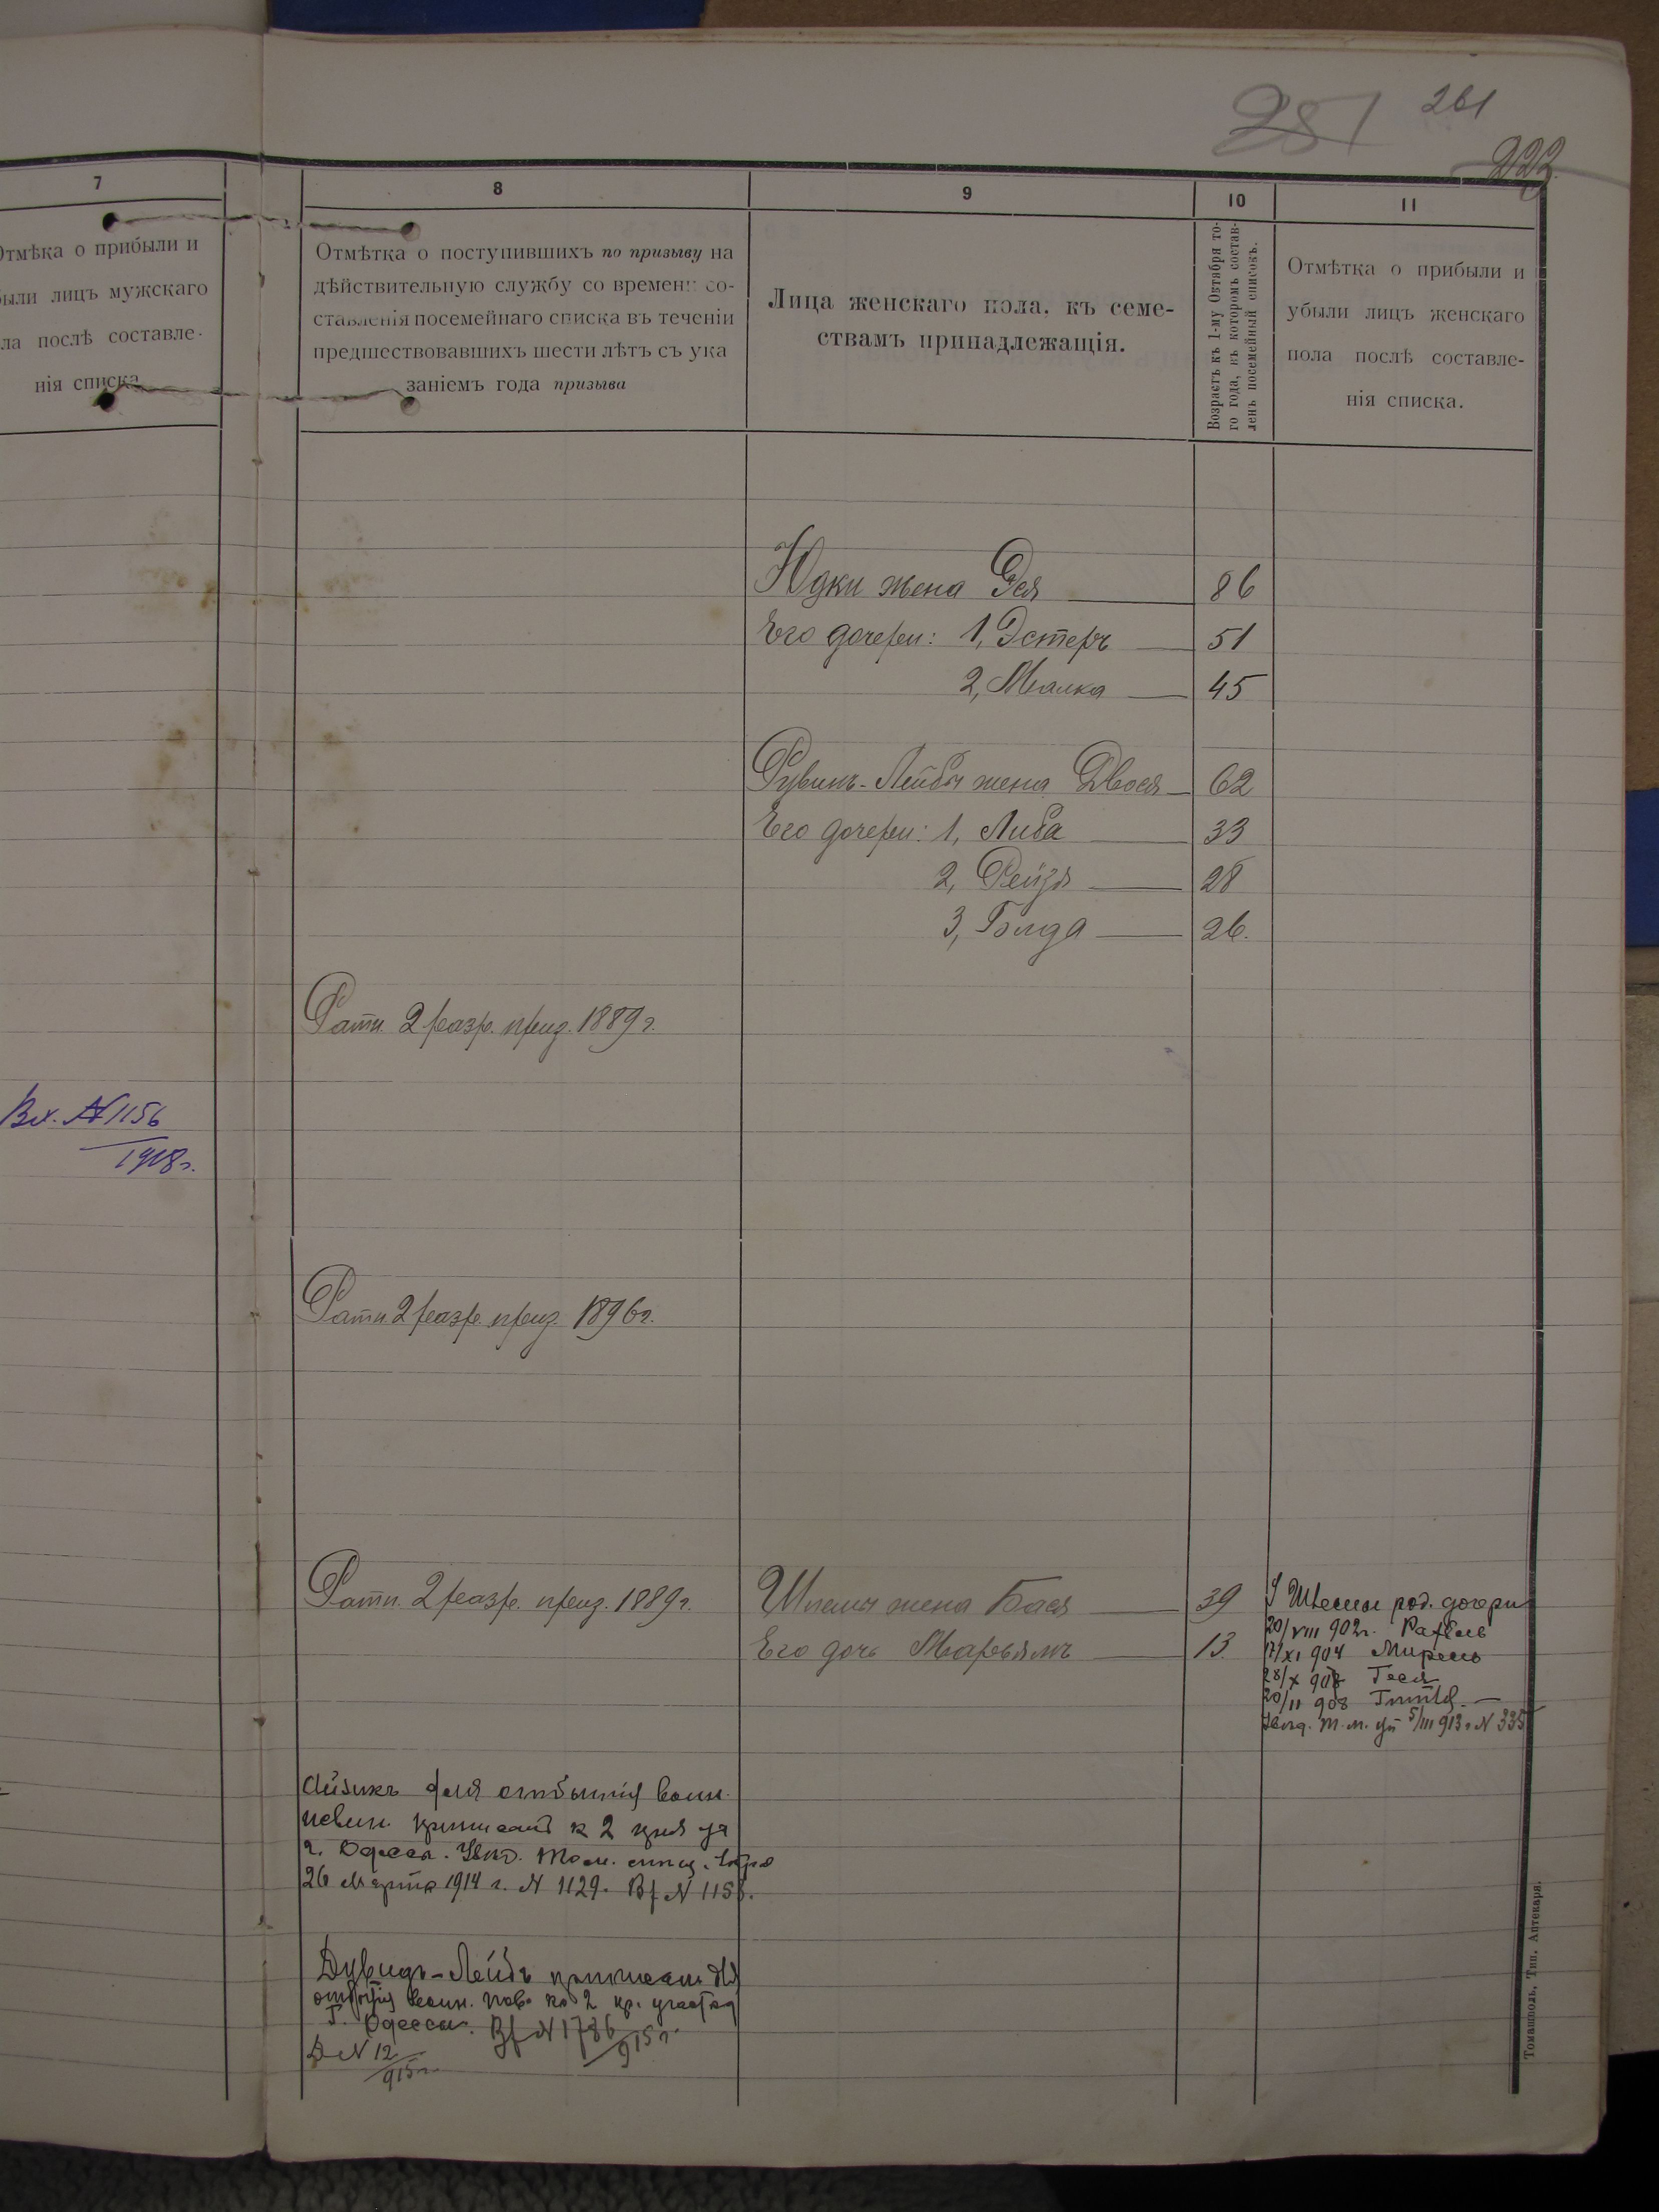 281 261
223
7
Отмѣка о прибыли и
были лицъ мужскаго
ла послѣ составле-
нія списка
8
Отмѣтка о поступившихъ по призыву на
дѣйствительную службу со времени со-
ставленія посемейнаго списка въ теченіи
предшествовавшихъ шести лѣтъ съ ука
заніемъ года призыва
9
Лица женскаго пола, къ семе-
ствамъ принадлежащія.
10
Возрастъ къ 1-му Октября то-
го года, въ которомъ состав-
ленъ посемейный списокъ.
11
Отмѣтка о прибыли и
убыли лицъ женскаго
пола послѣ составле-
нія списка.
Юдки жена 86
Его дочери: 1, Эстеръ 51
2, Малка 45
Рувинъ-Лейбы жена Двося 62
Его дочери: 1, Либа 33
2, Рейзя 28
3, 26.
Ратн. 2 разр. приз. 1889 г.
Вх. № 1156
1918 г.
Ратн 2 разр. приз. 1896 г.
Ратн. 2 разр. приз. 1889 г.
Шлемы жена Бася 39
Его дочь Марьямъ 13
У Шлемы род. дочери
20/VIII 902 г. Рахель
17/XI 904 Мирель
28/X Геся
20/II 908 Гитля
5/III 913 г N 335
Айзикъ для отбытія воин.
повин. приписанъ к 2
г. Одесса.
26 марта 1914 г. N 1129. Вх N 1156.
Дувидъ-Лейбъ приписанъ для
отбытія воин. пов. ко 2 пр. участка
г. Одессы. Вх N 1786
915 г.
Д N 12
915 г.
Томашполь, Тип. Аптекаря.